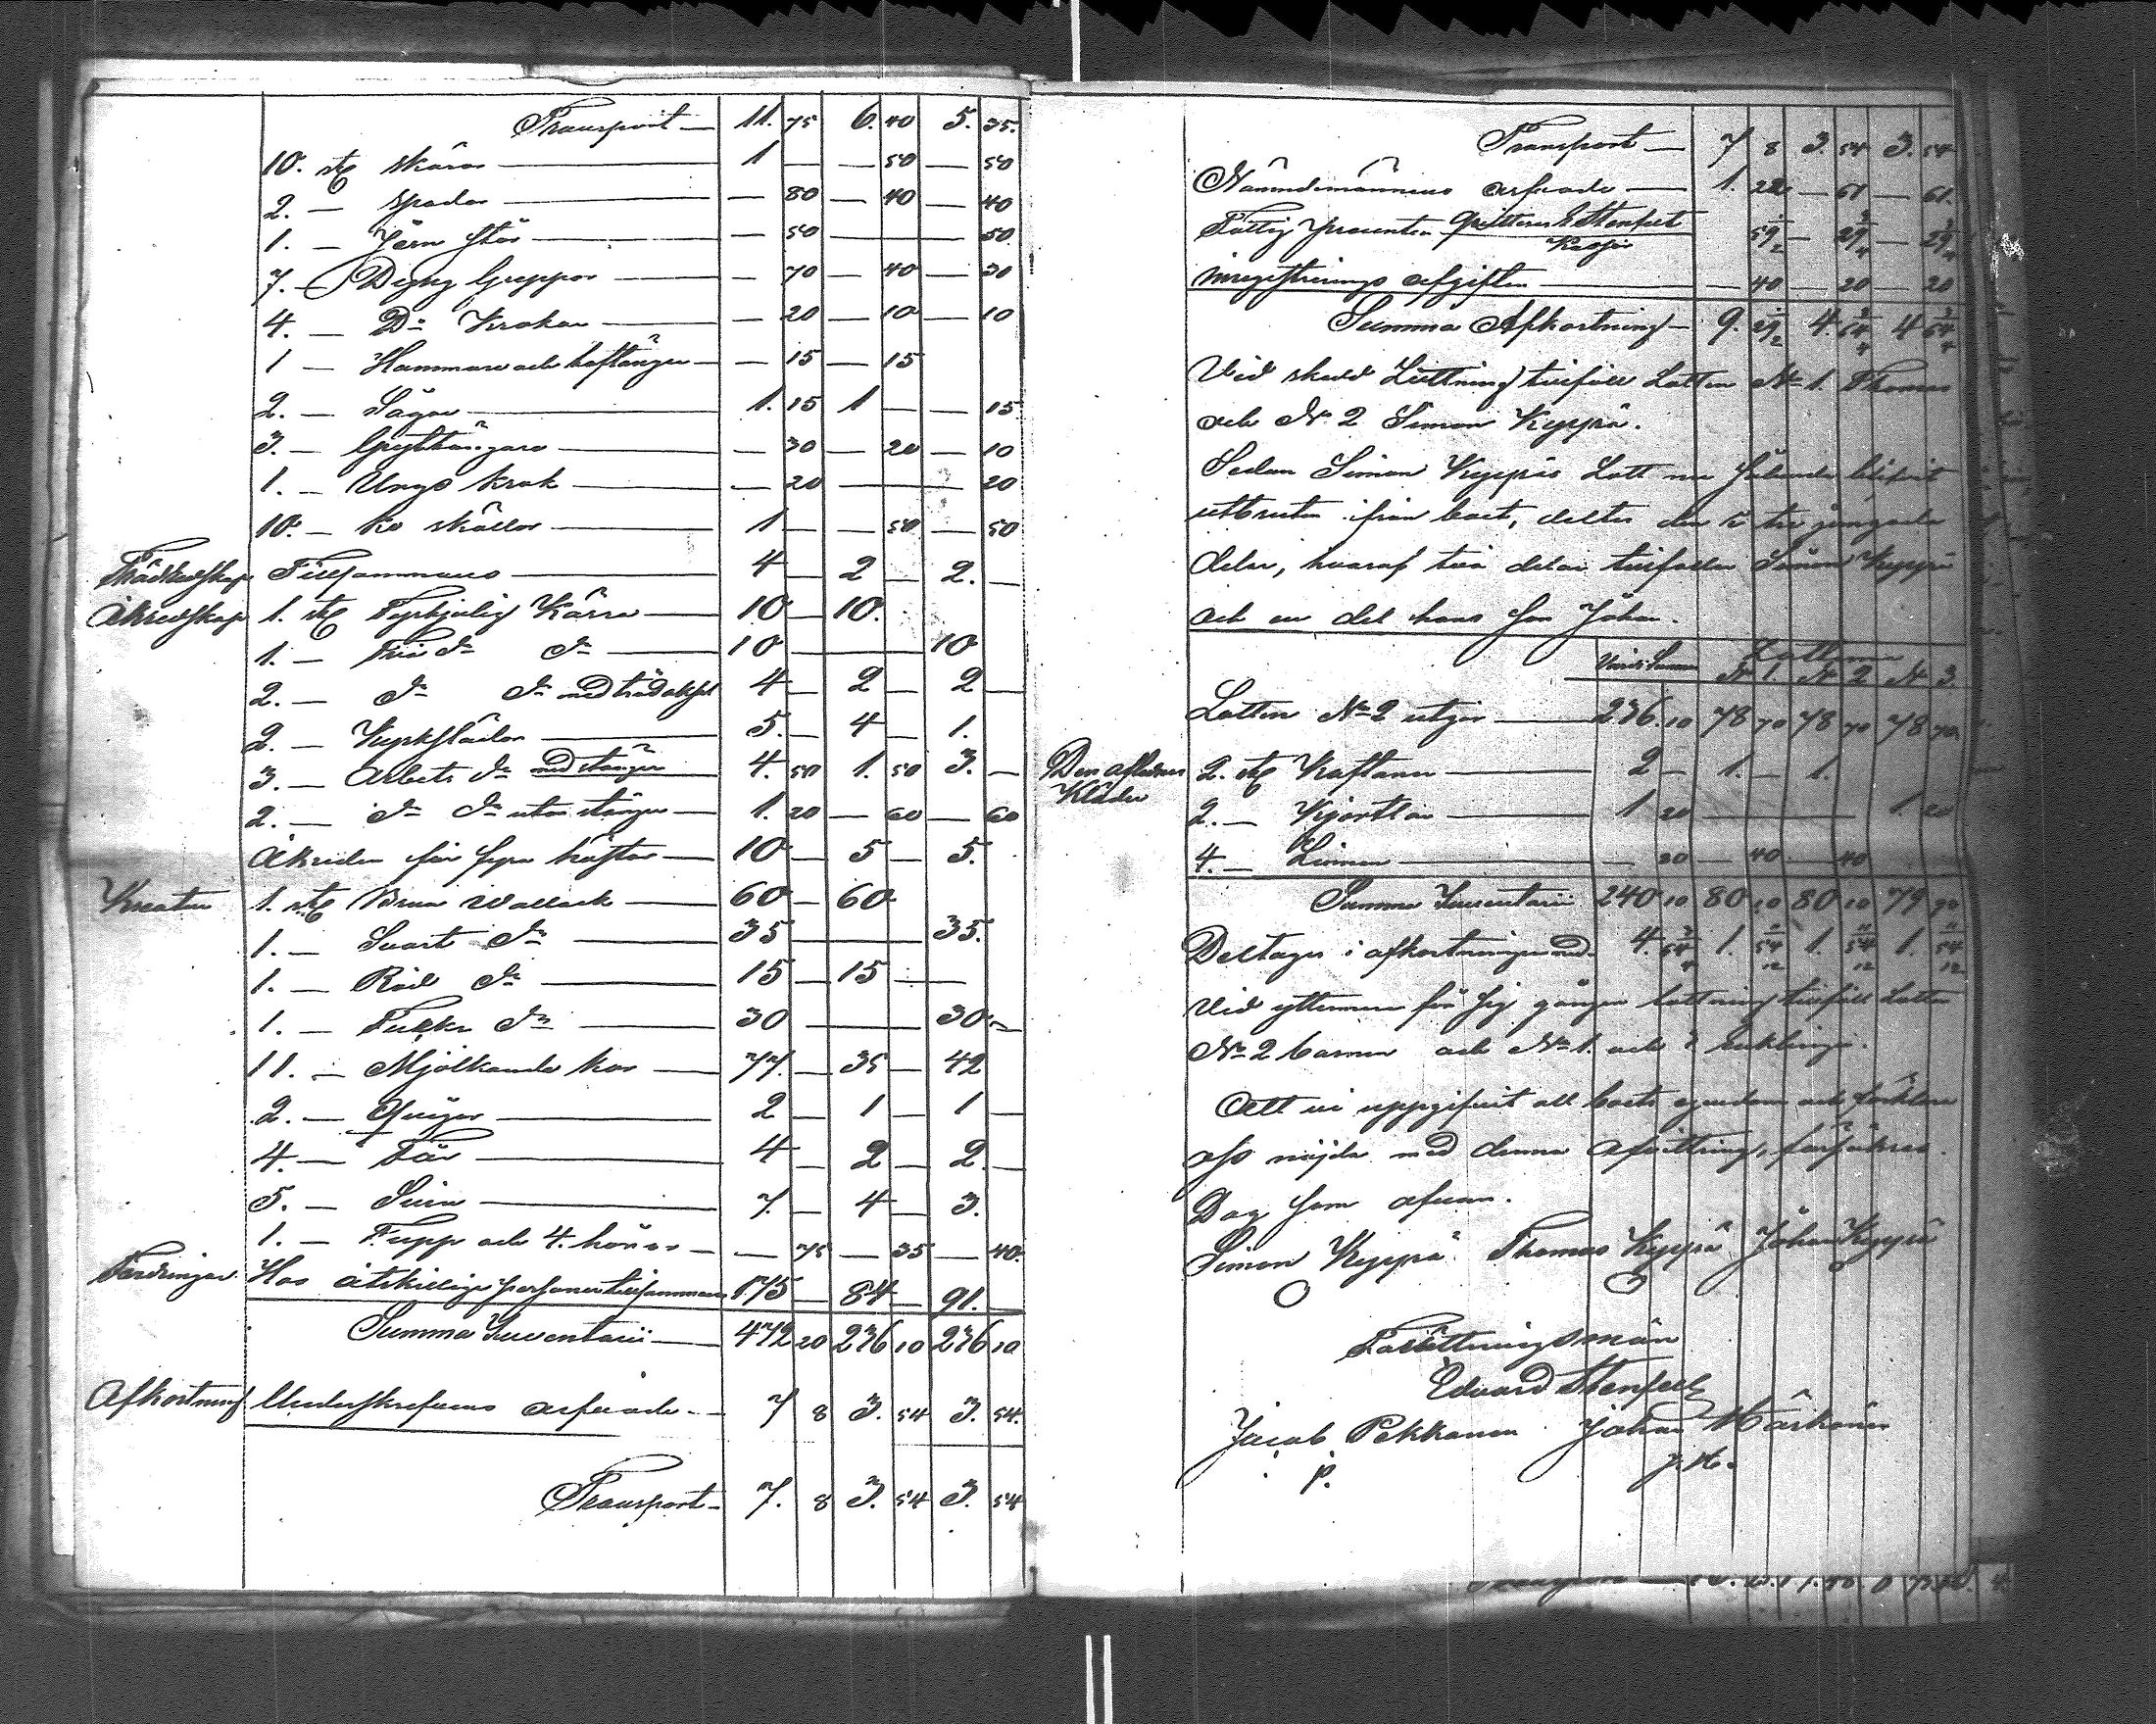 Transport — 11. 75 6. 40 5. 35.
10. st skäror — 1 — — 50 — 50
2. — spadar — — 80 — 40 — 40
1. — Jern stör — — 50 — — 50
7. — Degig Gryppor — — 70 — 40 — 30
4. — Do Krokar — — 20 — 10 — 10
1 — Hammare och hoftänger — — 15 — 15
2. — Sågar — 1. 15 1 — — 15
3. — — 30 — 20 — 10
1. — Ungs krok — — 20 — — 20
10. — ko skällor — 1 — — 50 — 50
Trädkedskap Tillsammans — 4 — 2 — 2. —
Åkredskap 1. st Fyrhjulig Kärra — 10 — 10.
1. — Två do do — 10 — — 10
2. — do do med trädaksel 4 — 2 — 2 —
2. — Kyrkslädor — 5. — 4 — 1.
3. — Arbets do med stänger 4. 50 1. 50 3. —
2. — do do utan stänger — 1. 20 — 60 — 60
Åkreden för fyra hästar — 10 — 5 — 5.
Kreatur 1. st Brun Wallack — 60 — 60
1. — Svart do — 35 — — 35.
1. — Röd do — 15 — 15 — —
1. — do — 30 — — 30 —
11. — Mjölkande kor — 77. — 35 — 42
2. — Qvigor — 2 — 1 — 1 —
4. — Får — 4 — 2 — 2. —
5. — Svin — 7. — 4 — 3.
1. — Tupp och 4. hönor — — 75 — 35 — 40.
Fordringar. Hos åtskillige personer tillsammans 175 — 84 — 91. —
Summa Inventarii — 472 20 236 10 236 10
Afkortning Underskrefvens arfvode — 7 8 3. 54 3. 54.
Transport — 7. 8 3. 54 3. 54
Transport — 7 8 3. 54 3. 54
Nämndemännens arfvode — 1. 22 — 61 — 61.
Fattig procenten qvitteras E Stenfelt 59 1/2 — 29 3/4 — 29 3/4
Kassör
inregistrerings afgiften — — 40 — 20 — 20
Summa Afkortning — 9. 29 1/2 4. 64 3/4 4 64 3/4
Vid skedd Lottning tillföll Lotten No 1. Thomas
och No 2 Simon Kyyrä.
Sedan Simon Kyyräs Lott nu sålunda blifvit
utbruten ifrån boet, deltes den i tre jemgoda
delar, hvaraf två delar tillfaller Simon Kyyrä
och en del hans son Johan.
Summa Lotterne
No 1. No 2 No 3.
Lotten No 2 utgör — 236. 10 78 70 78 70 78 70.
Den aflednes 2. st Kaftaner — 2 — 1. — 1.
Kläder
2. — Kjortlar — 1 20 — — 1. 20
4. — Linnen — — 80 — 40 — 40
Summa Inventarii 240 10 80 10 80 10 79 90
Deltager i afkortningen med. 4. 64 3/4 1. 54 11/12 1. 54 11/12 1. 54 11/12
Vid yttermera för sig gången lottning tillföll Lotten
No 2 barnen och No 1. och 3 Enklingen.
Att vi uppgifvit all boets egendom och förklara
oss nöjda med denna afvittring, försäkras.
Dag som ofvan.
Simon Kyyrä. Thomas Kyyrä Johan Kyyrä
Förrättningsmän
Edvard Stenfelt
Jacob Pekkanen Johan Härkönen
P. J. H.